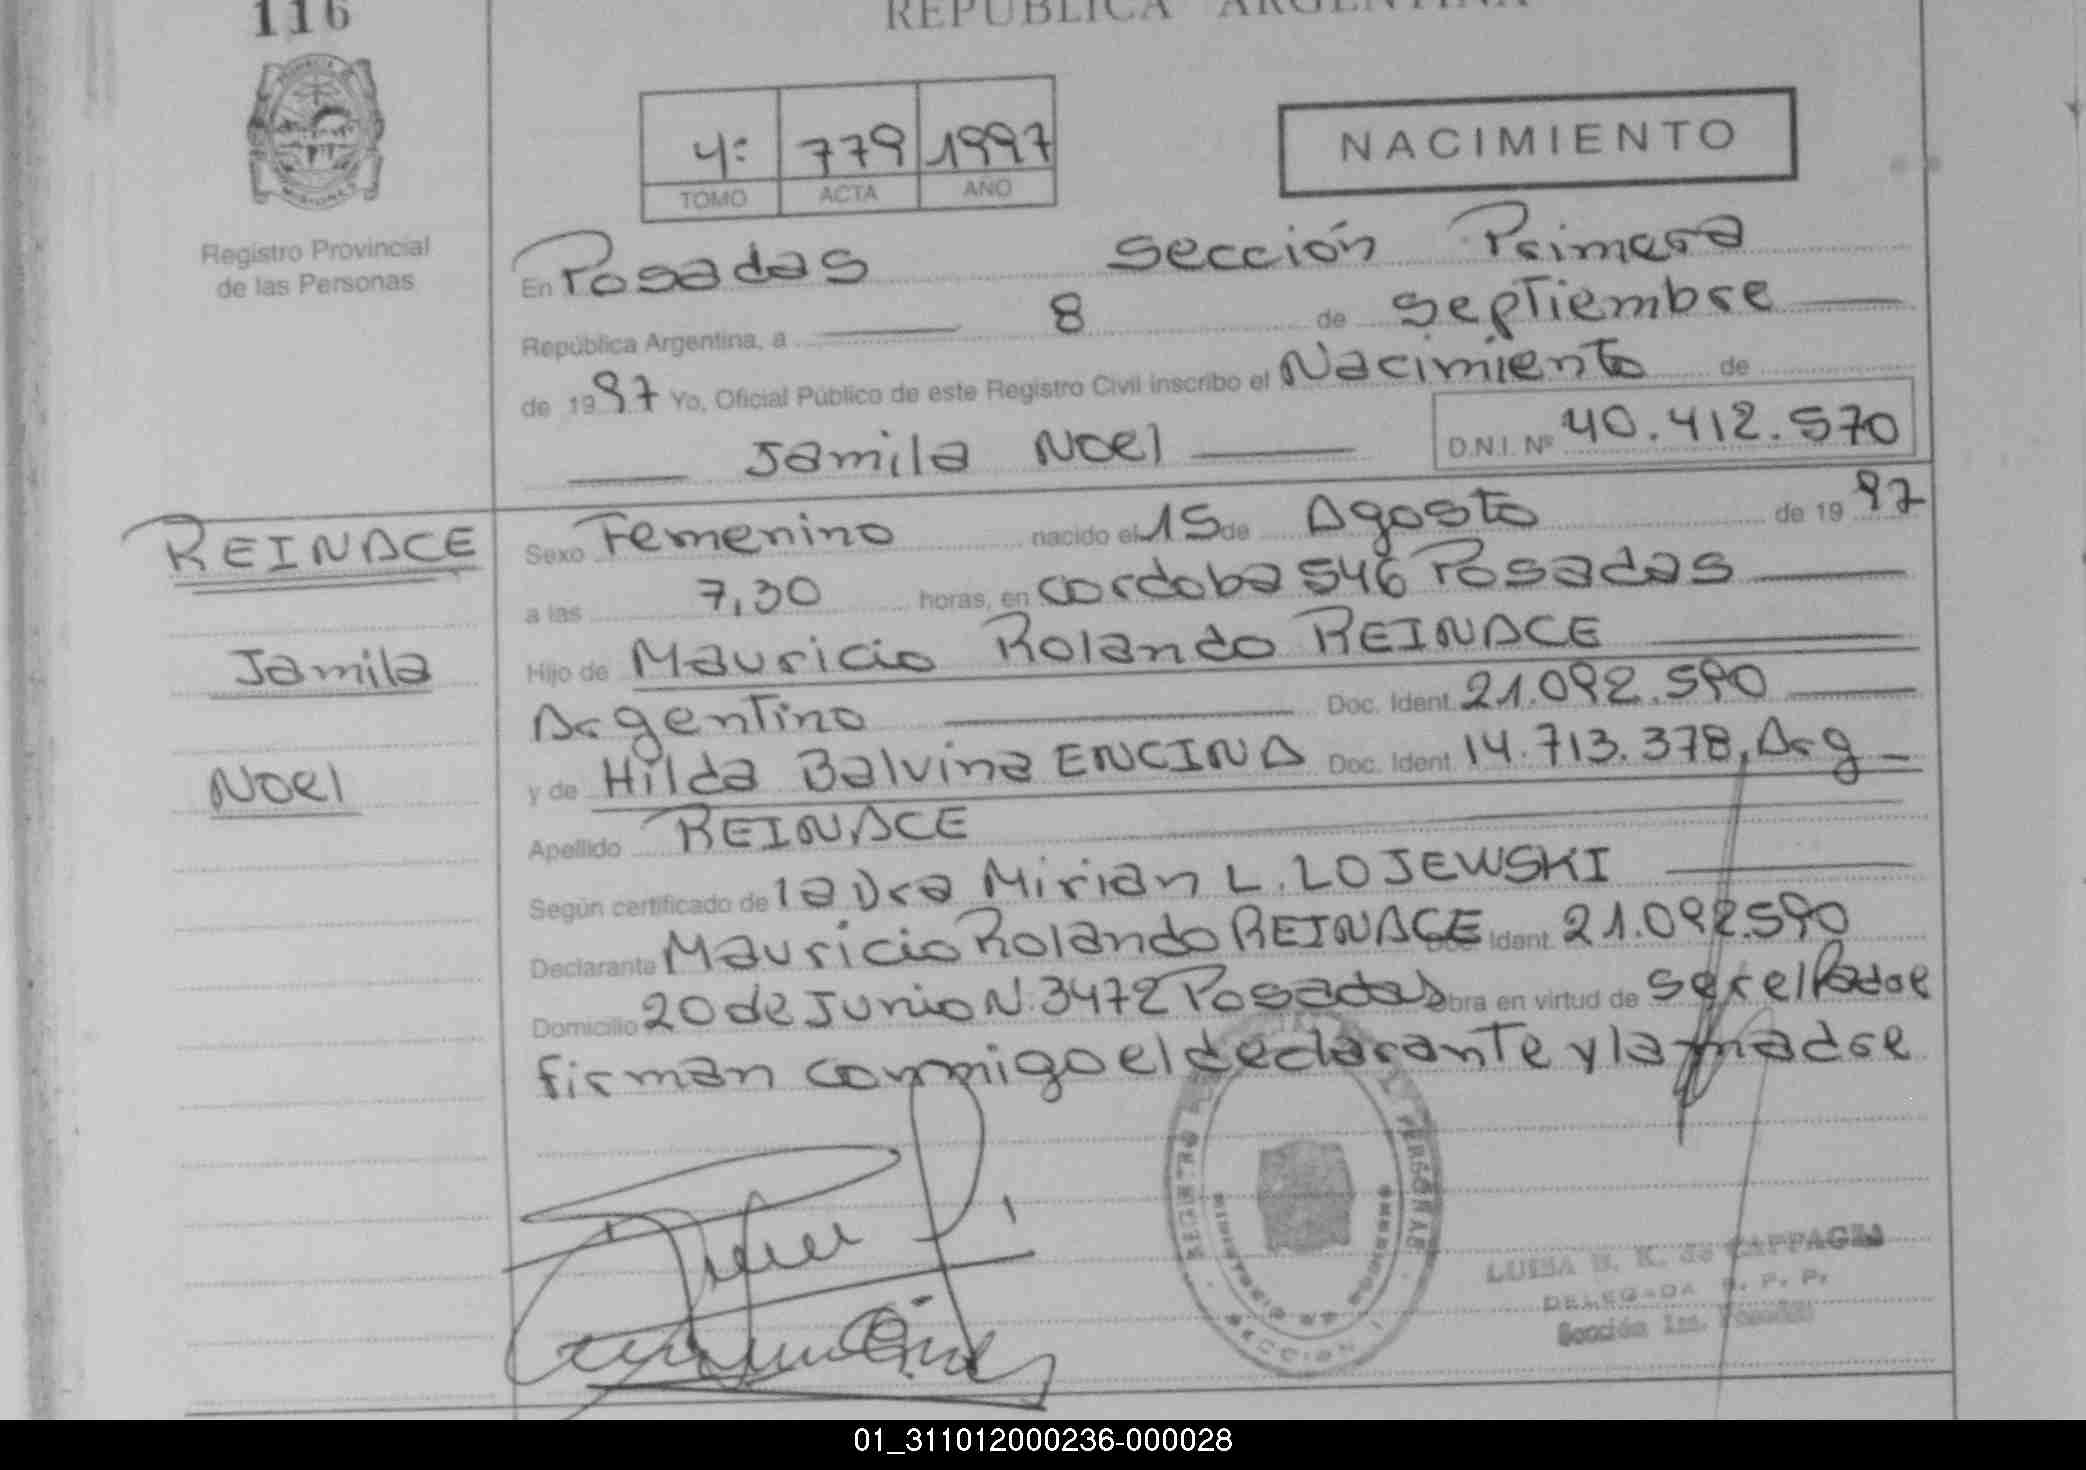 116
REPUBLICA ARGENTINA
4: 779 1997
TOMO ACTA AÑO
NACIMIENTO
Registro Provincial
de las Personas
En Posadas Sección Primera
República Argentina, a 8 de septiembre
de 1997 Yo, Oficial Público de este Registro Civil inscribo el Nacimiento de
Jamila Noel D.N.I. Nº 40.412.570
REINACE
Jamila
Noel
Sexo Femenino nacido el 15 de Agosto de 1997
a las 7,30 horas, en cordoba 546 Posadas
Hijo de Mauricio Rolando REINACE
Argentino Doc. Ident. 21.092.590
y de Hilda Balvina ENCINA Doc. Ident. 14.713.378, Arg
Apellido REINACE
Según certificado de la Dra Mirian L. LOJEWSKI
Declarante Mauricio Rolando REINACE Ident. 21.092.590
Domicilio 20 de Junio N. 3472 Posadas obra en virtud de ser el Padre
firman conmigo el declarante y la madre
PERSONAS
MINISTERIO DE GOBIERNO
SECCION 1
LUISA de CAPPAGLI
DELEGADA R. P. P.
Sección 1ra. Posadas
01_311012000236-000028